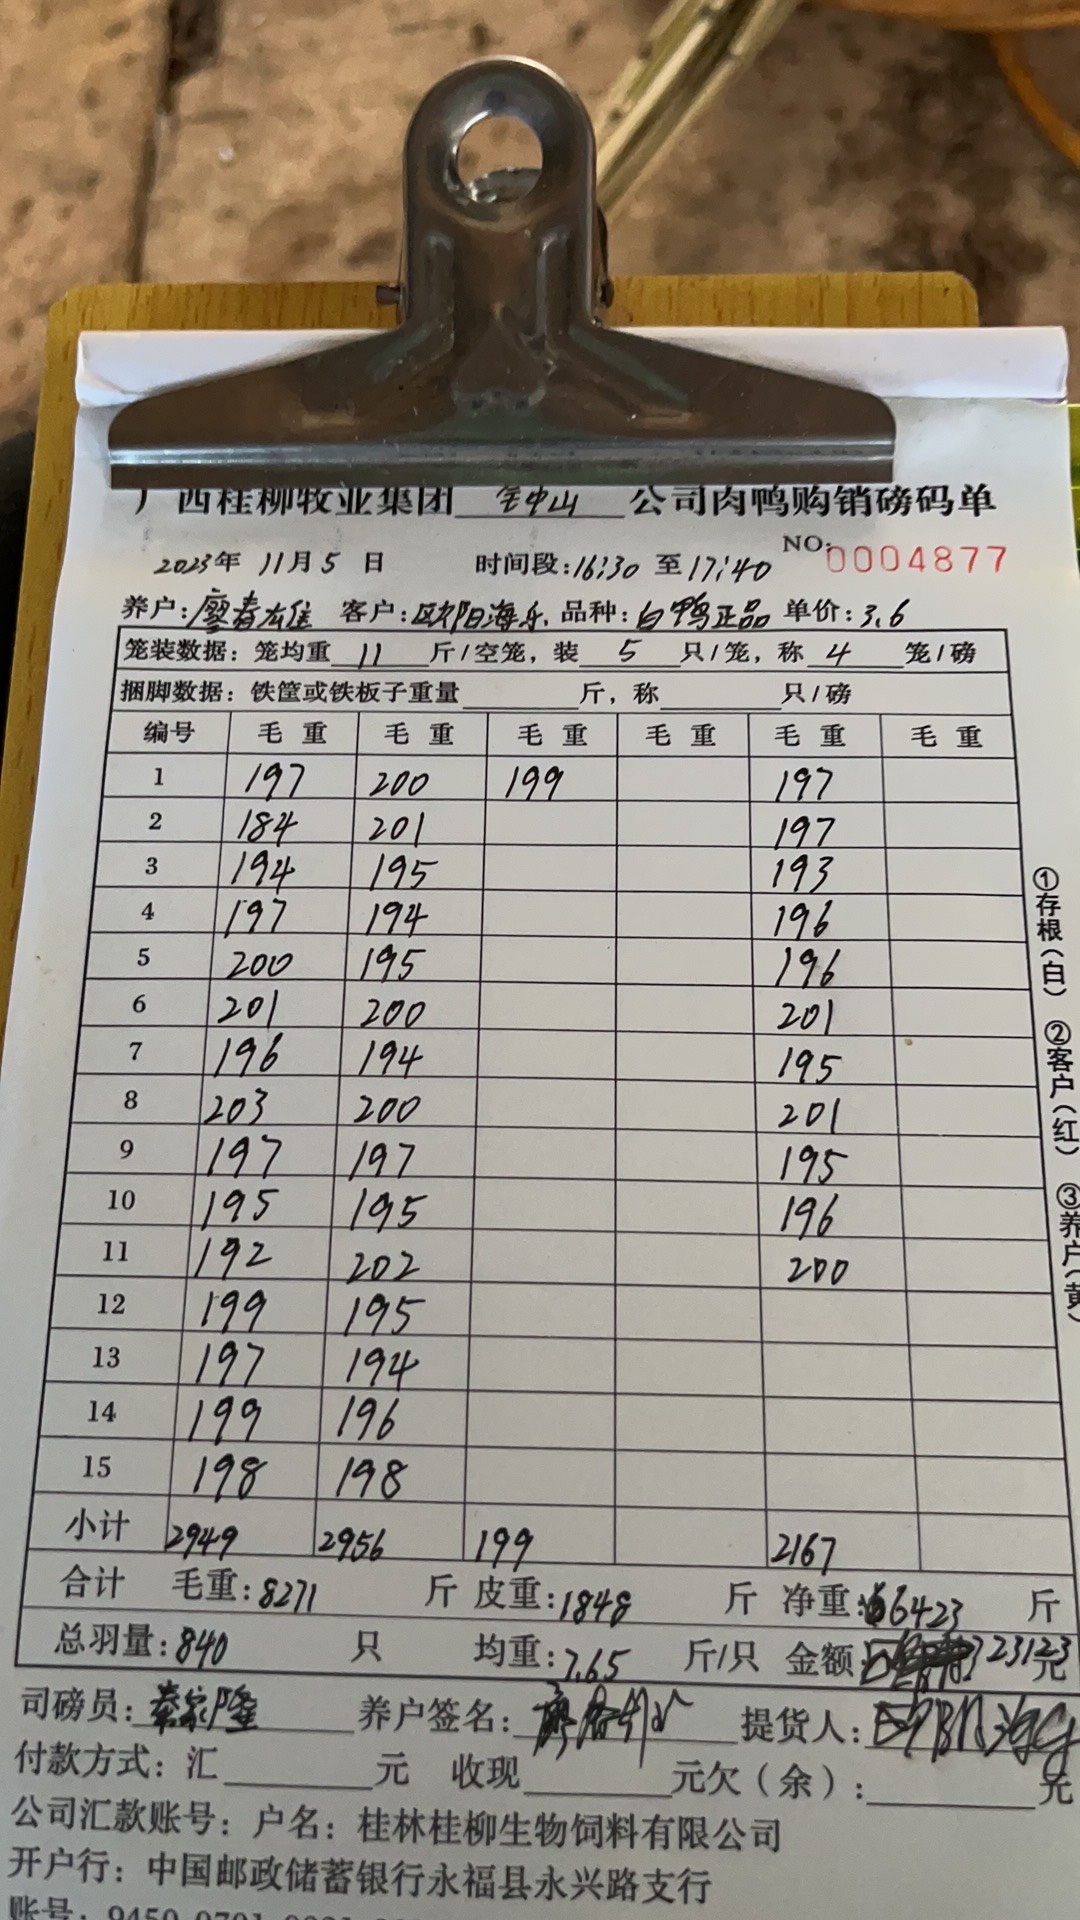 广西桂柳牧业集团 公司肉鸭购销磅码单
2023年 11月5 日 时间段:16:30 至17:40 NO:0004877
养户: 廖春雄 客户: 欧阳海乐 品种: 白鸭正品 单价: 3.6
笼装数据: 笼均重 11 斤/空笼, 装 5 只/笼, 称 4 笼/磅
捆脚数据: 铁筐或铁板子重量 斤, 称 只/磅
编号 毛重 毛重 毛重 毛重 毛重 毛重
1 197 200 199 197
2 184 201 197
3 194 195 193
4 197 194 196
5 200 195 196
6 201 200 201
7 196 194 195
8 203 200 201
9 197 197 195
10 195 195 196
11 192 202 200
12 199 195
13 197 194
14 199 196
15 198 198
小计 2949 2956 199 2167
合计 毛重: 8271 斤 皮重: 1848 斤 净重: 6423 斤
总羽量: 840 只 均重: 7.65 斤/只 金额 23123元
司磅员: 秦家隆 养户签名: 提货人:
付款方式: 汇 元 收现 元欠(余): 元
公司汇款账号: 户名: 桂林桂柳生物饲料有限公司
开户行: 中国邮政储蓄银行永福县永兴路支行
账号: 9450
①存根(白) ②客户(红) ③养户(黄)